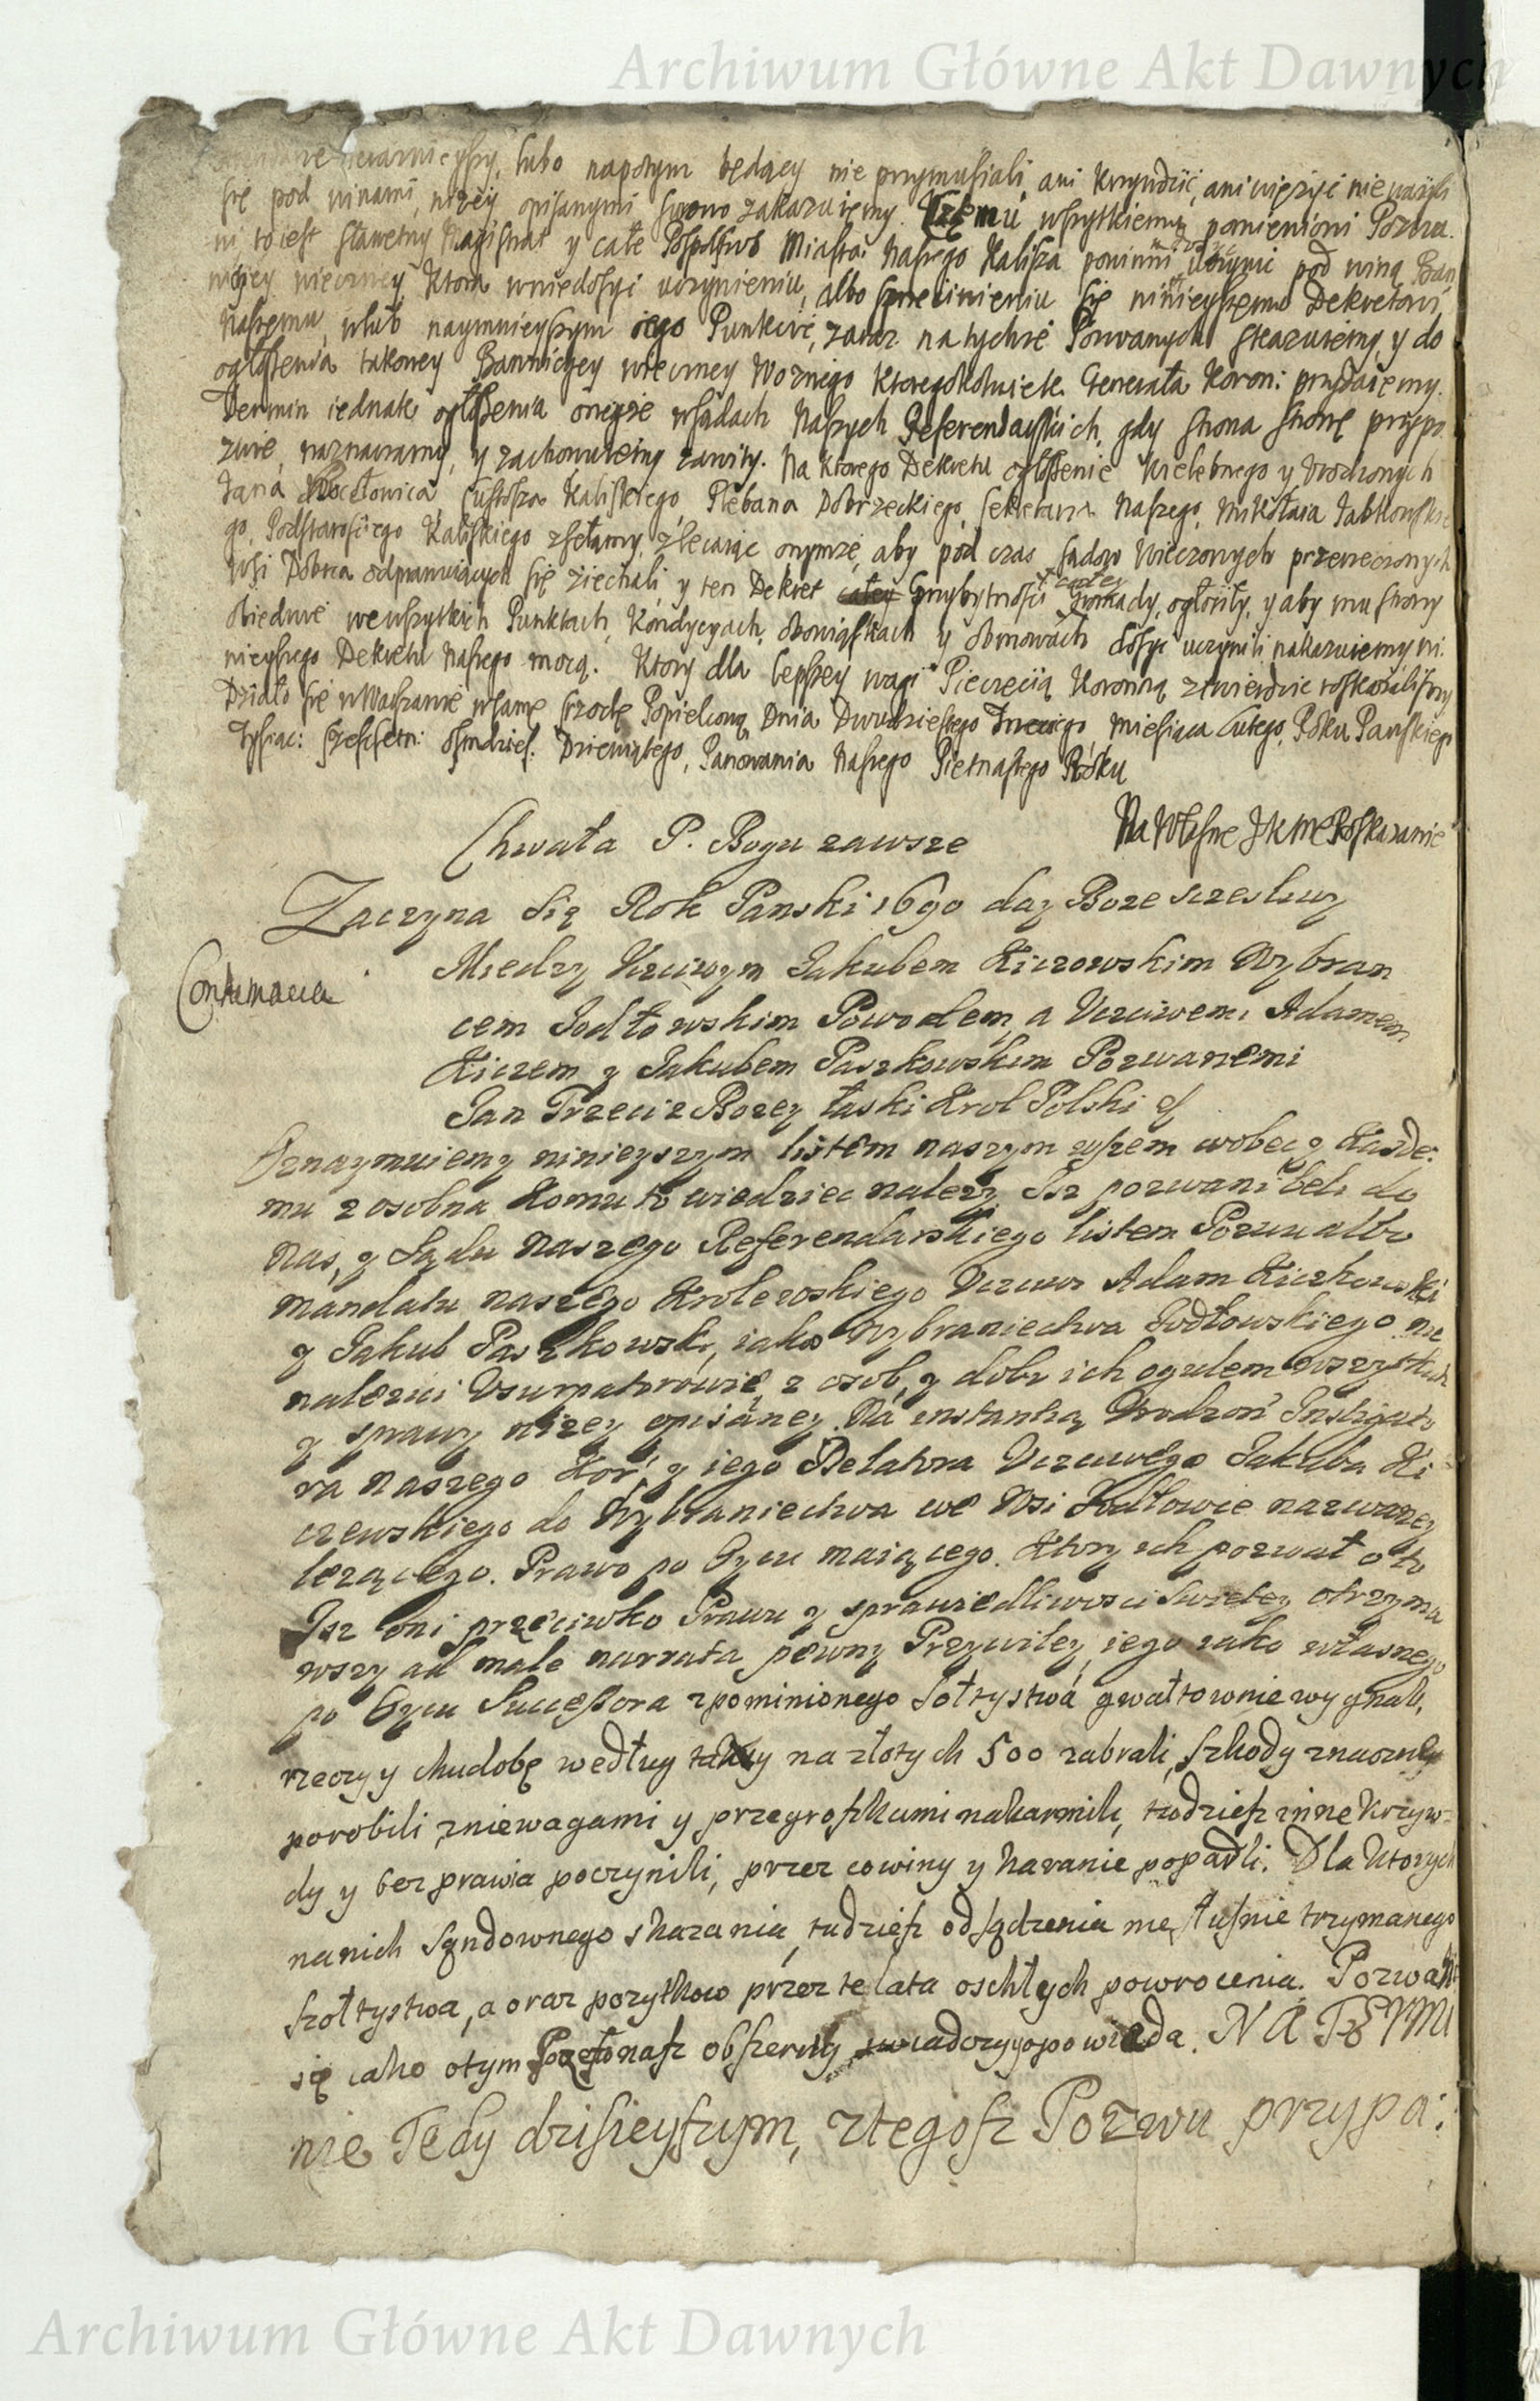 Archiwum Główne Akt Dawnych
lubo napotym będący nie przymuśiali, ani krzywdźić, ani więzić nieważyli
się pod winami, niżey opisanymi surowo zakazuiemy. Czemu wszytkiemu pomienioni Pozwa.
ni, to iest sławetny Magistrat y całe Pospolstwo Miasta Naszego Kalisza powinni uczynić pod winą Ban
nicyey wieczney, Ktora wniedosyć uczynieniu, albo sprzeciwieniu się ninieyszemu Dekretowi
Naszemu, wlub naymnieyszym iego Punkcie, zaraz na tychże Pozwanych skazuiemy, y do
ogłoszenia takowey Bannicyey wieczney Woznego Ktoregokolwiek Generała Koron: przydaiemy.
Termin iednak ogłoszenia oneyże wsądach Naszych Referendarskich, gdy strona stronę przypo
zwie, naznaczamy, y zachowuiemy zawity. Na ktorego Dekretu ogłoszenie Wielebnego y Urodzonych
Jana Kustosza Kaliskiego, Plebana Dobrzeckiego, Sekretarza Naszego, Mikołaia Jabłkowskie
go, Podstarosciego Kaliskiego zsełamy, zlecaiąc onymże, aby pod czas sądow Wieczonych przerzeczonych
wsi Dobrca odprawuiących się ziechali, y ten Dekret całey przybytności całey Gromady, ogłosiły, y aby mu strony
obiedwie wewszytkich Punktach, Kondycyach, obowiąskach y obmowach dosyć uczynili nakazuiemy ni.
nieyszego Dekretu Naszego mocą. Ktory dla lepszey wagi Pieczęcią Koronną ztwierdzić roskazalismy
Działo się wWarszawie wsamę srzodę Popielcową, Dnia Dwudziestego Trzeciego, Miesiąca Lutego, Roku Pańskiego
Tysiąc: szescset: osmdzies: Dziewiątego, Panowania Naszego Pietnastego Roku
Chwała P. Bogu zawsze
Na Własne JKMe Roskazanie
Zaczyna się Rok Panski 1690 day Boze sczesliwy
Contumacia
Miedzy Uczciwym Jakubem Kiczowskim Wybran
cem Jodłowskim Powodem, a Uczciwemi Adamem
Kiczem y Jakubem Paszkowskim Pozwanemi
Jan Trzeci z Bozey łaski Krol Polski &
Oznaymuiemy ninieyszym listem naszym wszem wobec y Kazde:
mu zosobna Komu to wiedziec nalezy Isz pozwani beli do
Nas, y Sądu Naszego Referendarskiego listem Pozwu albo
mandatu naszego Krolewskiego Uczciwi Adam Kiczkowski
y Jakub Paszkowski, iako Wybraniectwa Jodłowskiego nie
nalezni Usurpatorowie, z osob, y dobr ich ogulem wszystkich
y sprawy nizey opisaney. Na instantią Urodzon Instigato
ra naszego Kor: y iego Delatora Uczciwego Jakuba Ki
czewskiego do Wybraniectwa we Wsi Jodłowie nazwaney
lezącego. Prawo po Oycu maiącego. Ktorych pozwał o to
Isz oni przeciwko Prawu y sprawiedliwosci Swietey otrzyma
wszy ad male narrata pewny Przywiley, iego iako własnego
po Oycu Successora zpominionego Sołtystwa gwałtownie wygnali,
rzeczy y chudobę według taxy na złotych 500 zabrali, szkody znaczne
porobili zniewagami y przegroszkami nakarmili, tudziesz inne krzyw-
dy y bezprawia poczynili, przez co winy y karanie popadli. Dla ktorych
na nich Sąndownego skazania, tudziesz odsądzenia niesłusnie trzymanego
szołtystwa, a oraz pozytkow przez te lata oschłych powrocenia. Pozwani
się iako otym obszerniy opowiada. NA TERMI
nie Tedy dzisieyszym, ztegosz Pozwu przypa:
Archiwum Główne Akt Dawnych